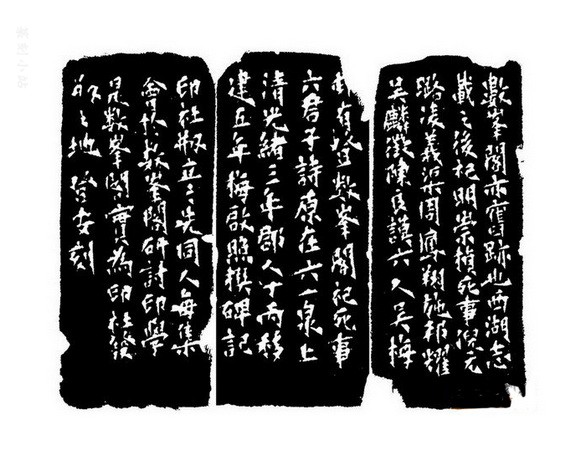 數峯閣亦舊跡也西湖志
載之後祀明崇楨死事倪元
璐凌義渠周鳳翔施邦耀
吳麟徵陳良謨六人吳梅
村有登數峯閣祀死事
六君子詩原在六一泉上
清光緒三年郡人丁丙移
建五年梅啟照撰碑記
印社剏立之先同人每集
會於數峯閣研討印學
是數峯閣實為印社發
之地 登安刻